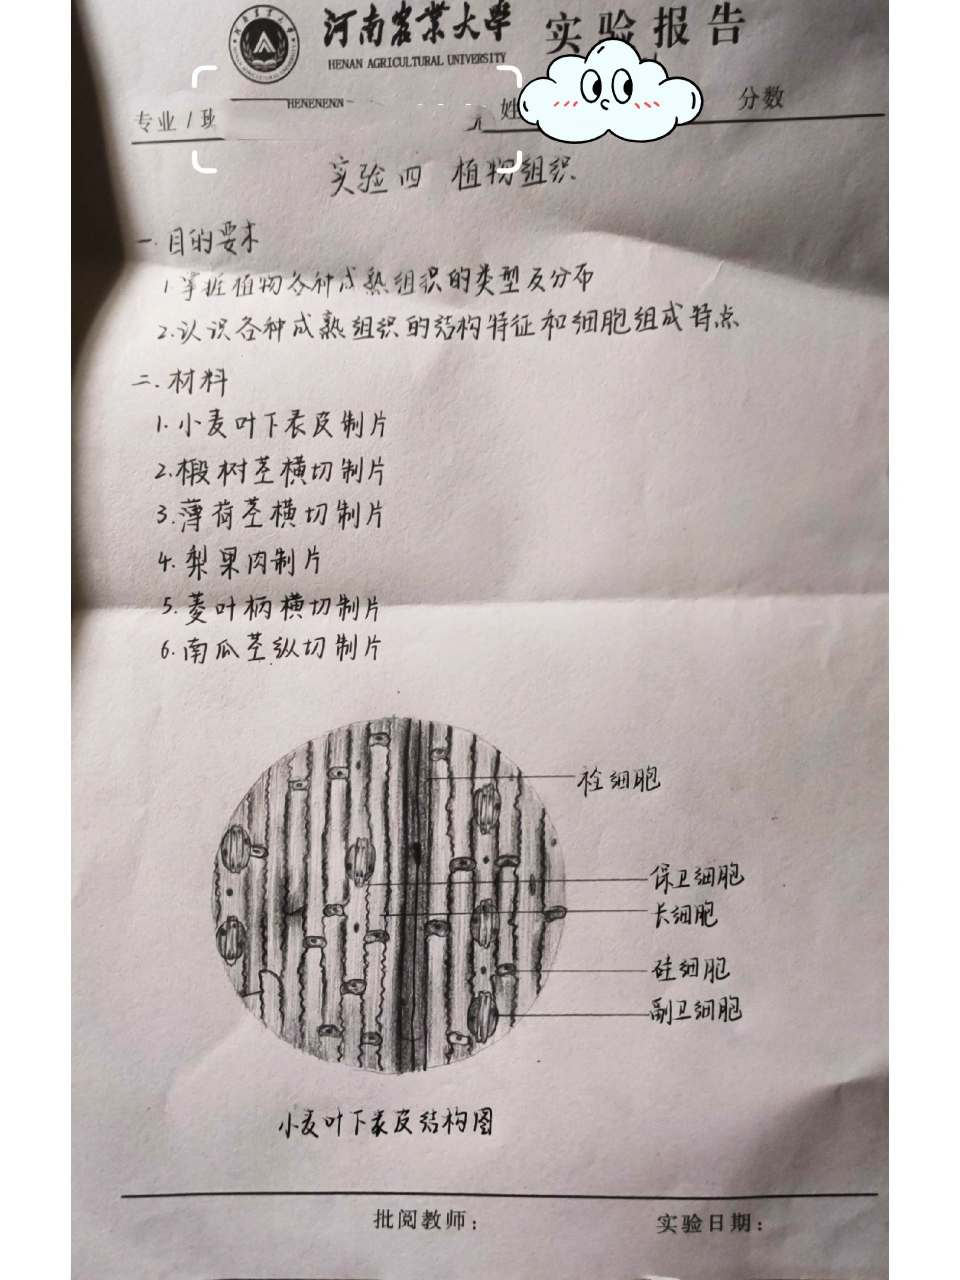 河南农业大学 实验报告
HENAN AGRICULTURAL UNIVERSITY
专业1班 姓 分数
实验四 植物组织
一.目的要求
1.掌握植物各种成熟组织的类型及分布
2.认识各种成熟组织的结构特征和细胞组成特点
二.材料
1.小麦叶下表皮制片
2.椴树茎横切制片
3.薄荷茎横切制片
4.梨果肉制片
5.菱叶柄横切制片
6.南瓜茎纵切制片
栓细胞
保卫细胞
长细胞
硅细胞
副卫细胞
小麦叶下表皮结构图
批阅教师： 实验日期：